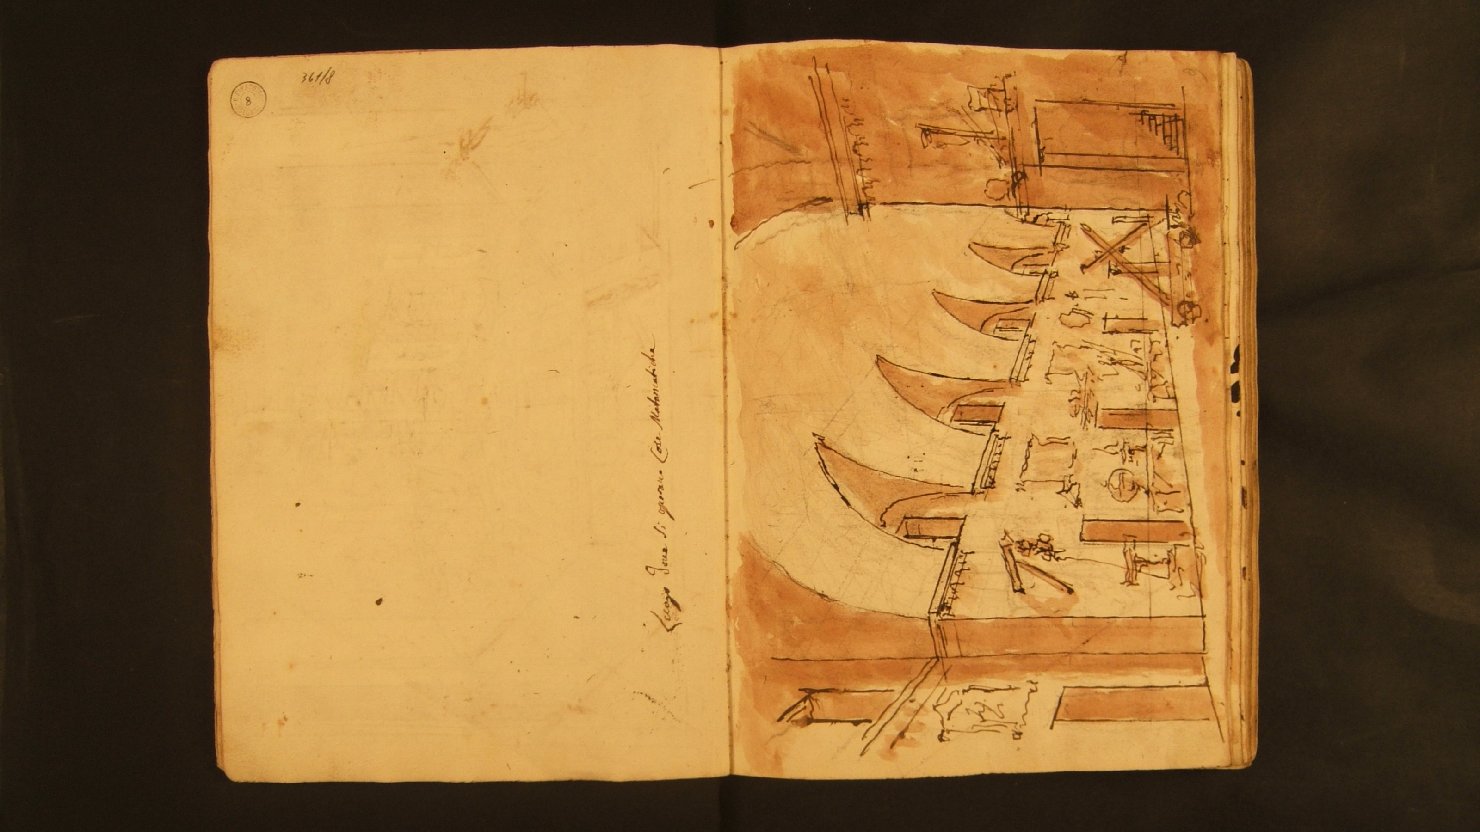 361/8
8
Luogo dove si operano Cose Matematiche